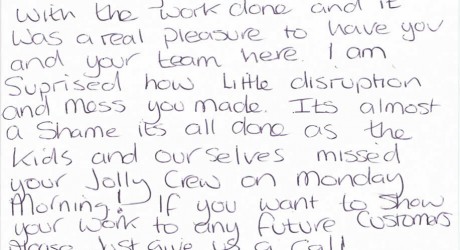 with the work done and it
was a real pleasure to have you
and your team here. I am
Suprised how little disruption
and mess you made. Its almost
a Shame its all done as the
kids and ourselves missed
your Jolly Crew on monday
Morning! If you want to show
your work to any future Customers
please just give us a call